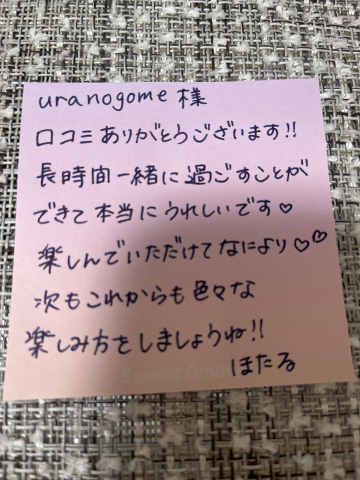 uranogome 様
口コミありがとうございます!!
長時間一緒に過ごすことが
できて本当にうれしいです♡
楽しんでいただけてなにより♡♡
次もこれからも色々な
楽しみ方をしましょうね!!
Sunset Grad
ほたる